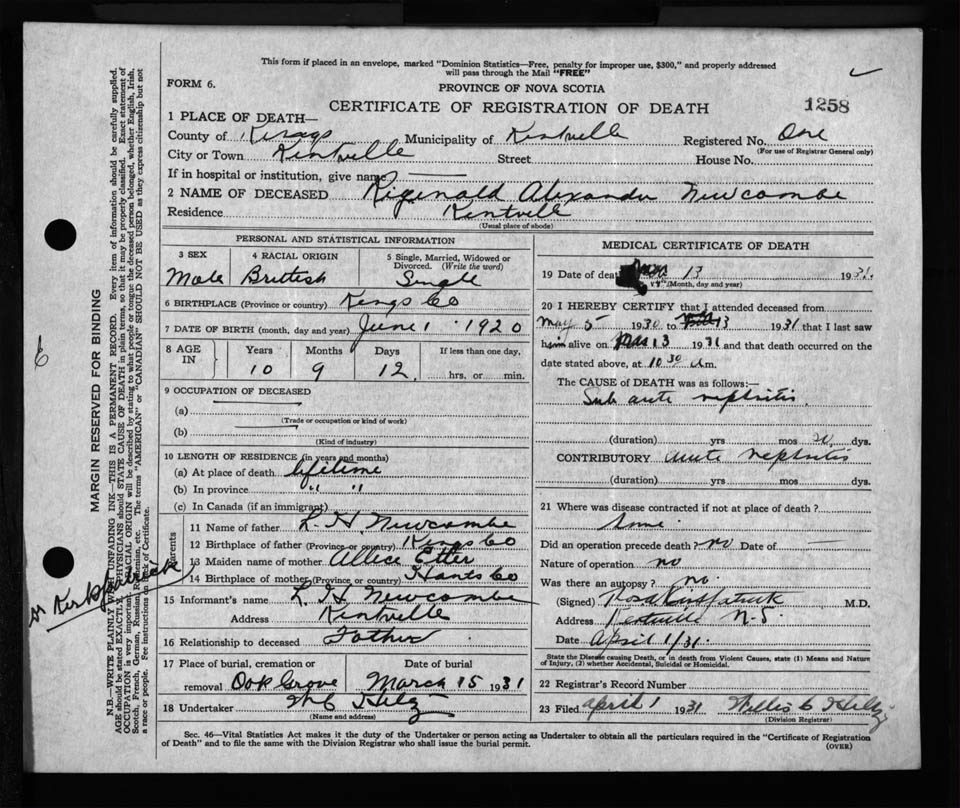 This form if placed in an envelope, marked "Dominion Statistics—Free, penalty for improper use, $300," and properly addressed
will pass through the Mail "FREE"
FORM 6.
PROVINCE OF NOVA SCOTIA
CERTIFICATE OF REGISTRATION OF DEATH
1258
1 PLACE OF DEATH—
County of Kings Municipality of Kentville Registered No. One
(For use of Registrar General only)
City or Town Kentville Street House No.
If in hospital or institution, give name
2 NAME OF DECEASED Riginald Alexander Newcombe
Residence Kentville
(Usual place of abode)
PERSONAL AND STATISTICAL INFORMATION
3 SEX 4 RACIAL ORIGIN 5 Single, Married, Widowed or
Divorced. (Write the word)
Male British Single
6 BIRTHPLACE (Province or country) Kings Co
7 DATE OF BIRTH (month, day and year) June 1 1920
8 AGE IN Years Months Days If less than one day,
10 9 12 hrs. or min.
9 OCCUPATION OF DECEASED
(a)
(Trade or occupation or kind of work)
(b)
(Kind of industry)
10 LENGTH OF RESIDENCE (in years and months)
(a) At place of death lifetime
(b) In province " "
(c) In Canada (if an immigrant)
Parents
11 Name of father L. H Newcombe
12 Birthplace of father (Province or country) Kings Co
13 Maiden name of mother Allice Etter
14 Birthplace of mother (Province or country) Hants Co
15 Informant's name L. H Newcombe
Address Kentville
16 Relationship to deceased Father
17 Place of burial, cremation or Date of burial
removal Oak Grove March 15 1931
18 Undertaker W C Hiltz
(Name and address)
MEDICAL CERTIFICATE OF DEATH
19 Date of death 13 1931
(Month, day and year)
20 I HEREBY CERTIFY that I attended deceased from
May 5 1930 to 13 1931 that I last saw
him alive on 13 1931 and that death occurred on the
date stated above, at 10 30 a.m.
The CAUSE of DEATH was as follows:—
Sub acute nephritis
(duration) yrs mos 20 dys.
CONTRIBUTORY acute nephritis
(duration) yrs mos dys.
21 Where was disease contracted if not at place of death?
Did an operation precede death? no Date of
Nature of operation no
Was there an autopsy? no.
(Signed) M.D.
Address Kentville N-S
Date April 1/31.
State the Disease causing Death, or in death from Violent Causes, state (1) Means and Nature
of Injury, (2) whether Accidental, Suicidal or Homicidal.
22 Registrar's Record Number
23 Filed April 1 1931 Willis C Hiltz
(Division Registrar)
Sec. 46—Vital Statistics Act makes it the duty of the Undertaker or person acting as Undertaker to obtain all the particulars required in the "Certificate of Registration
of Death" and to file the same with the Division Registrar who shall issue the burial permit.
(OVER)
MARGIN RESERVED FOR BINDING
N.B.—WRITE PLAINLY WITH UNFADING INK—THIS IS A PERMANENT RECORD. Every item of information should be carefully supplied.
AGE should be stated EXACTLY. PHYSICIANS should STATE CAUSE OF DEATH in plain terms, so that it may be properly classified. Exact statement of
OCCUPATION is very important. RACIAL ORIGIN will be described by stating to what people or tongue the deceased person belonged, whether English, Irish,
Scotch, French, German, Russian, Ruthenian, etc. The terms "AMERICAN" or "CANADIAN" SHOULD NOT BE USED as they express citizenship but not
a race or people. Fee instructions on back of Certificate.
Dr Kirkpatrick